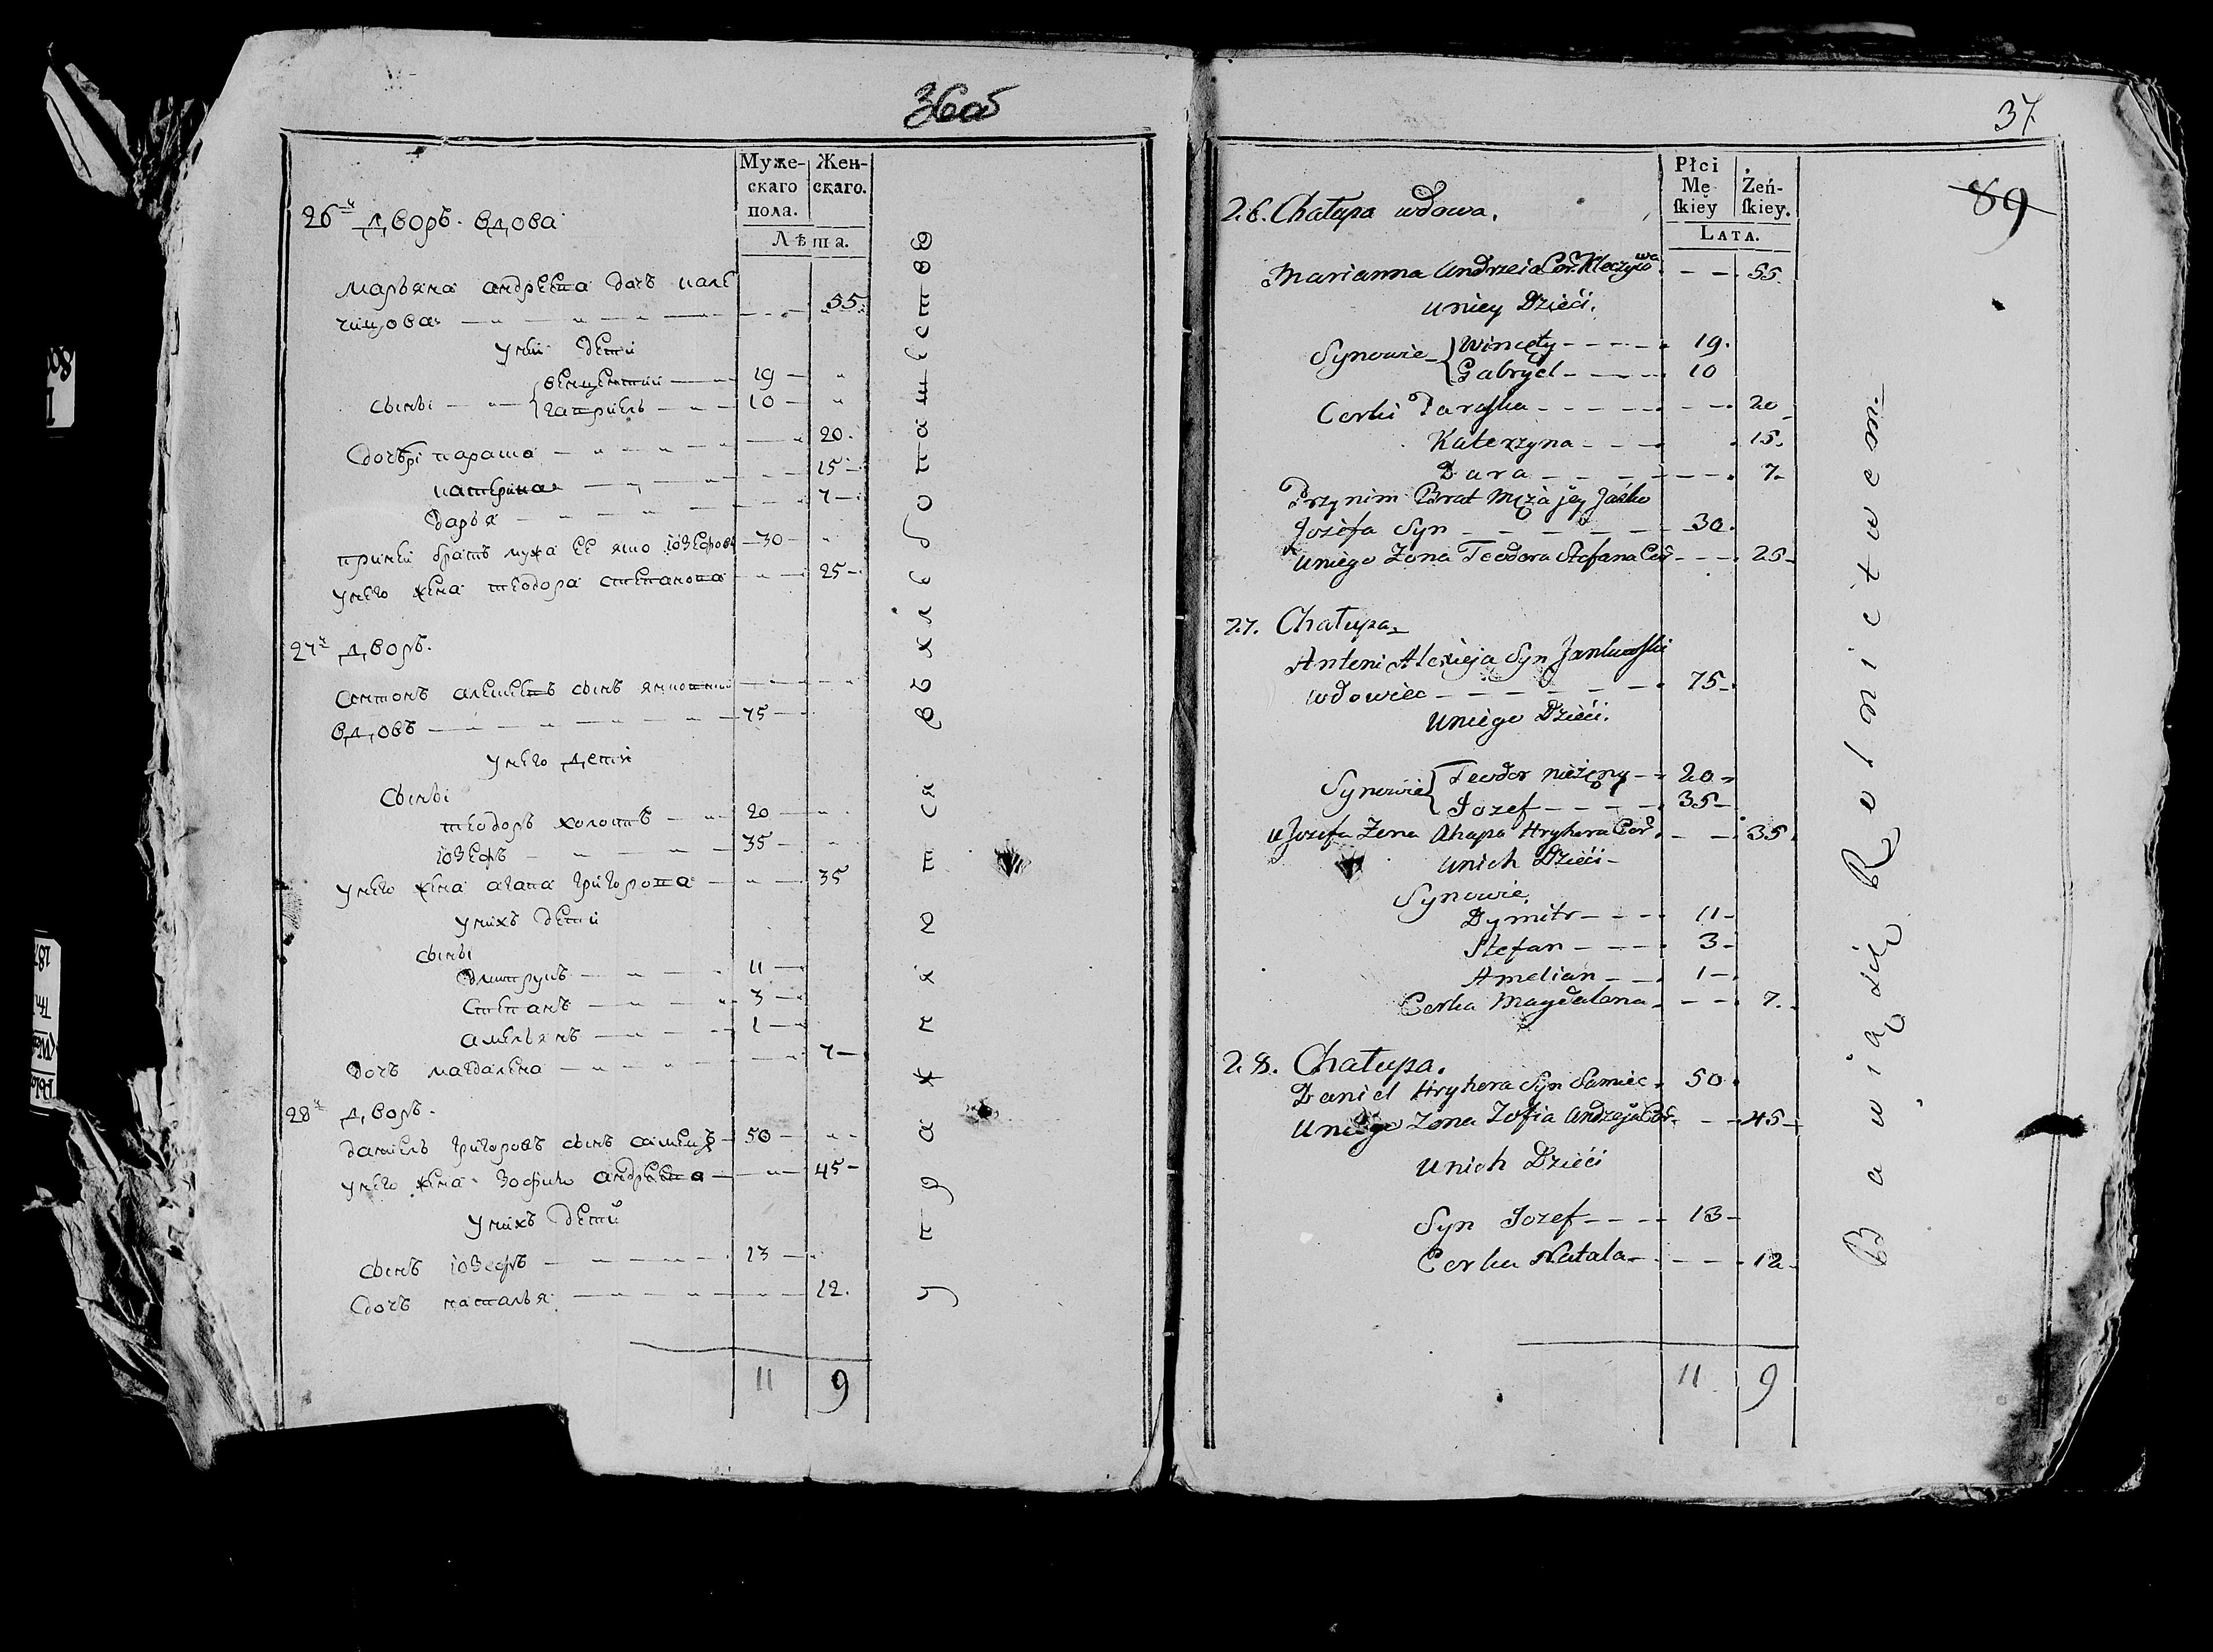 36об
Муже- Жен-
скаго скаго.
пола.
Лѣта.
26й дворъ. вдова
Марьяна андреева дочь кале
чицова 55
у ней дети
сыны венцентий 19
гаприель 10
дочьри параша 20.
катерина 15
дарья 7
приней братъ мужа ее яшо юзефовъ 30
у него жена теодора степанова 25
27й дворъ.
антонъ алешевъ сынъ
вдовъ 75
у него дети
сыны
теодоръ холостъ 20
юзефъ 35
у него жена агапа григорова 35
у нихъ дети
сыны
дмитрукъ 11
степанъ 3
амельянъ 1
дочь магдалена 7
28й дворъ.
даниель григоровъ сынъ самецъ 50
у него жена зофию андреева 45
у нихъ дети
сынъ юзефъ 13
дочь наталья 12.
11 9
упражняется въ хлебопашестве
37
89
Płci
Mę Żeń-
ſkiey ſkiey.
LATA.
26. Chałupa wdowa.
Marianna Andrzeia Cor. Kleczycowa 55.
u niey Dzieći.
Synowie Wincęty 19.
Gabryel 10
Corki Paraſka 20
Katerzyna 15.
Dara 7
Przynim Brat Męża jey Jaśko
Jozefa Syn 30.
u niego Żona Teodora Stefana Cor 25
27. Chałupa
Antoni Alexieja Syn Jankowſki
wdowiec 75
u niego Dzieći.
Synowie Teodor nieżęny 20
Jozef 35
u Jozefa Żena Ahapa Hryhora Cor. 35
u nich Dzieći
Synowie.
Dymitr 11
Stefan 3
Amelian 1
Corka Magdalena 7.
28. Chałupa.
Daniel Hryhora Syn Samiec 50
u niego Żona Zofia Andrzeja Cor. 45
u nich Dzieći
Syn Jozef 13
Corka Natala 12
11 9
Bawią się Rolnictwem.